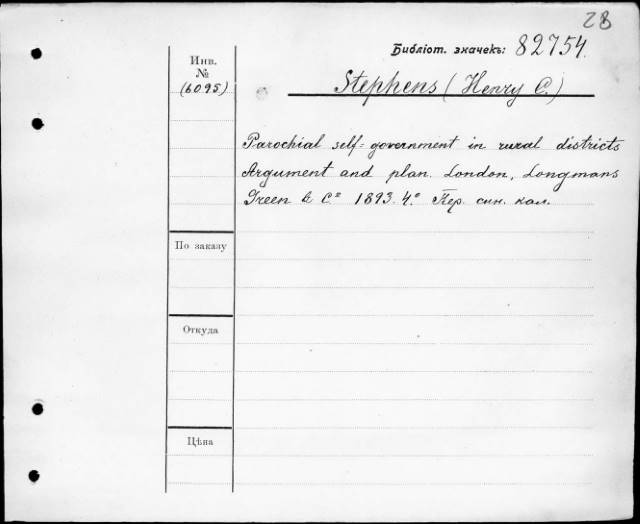 28
Библіот. значекъ: 82754.
Инв.
№
(6095)
Stephens (Henry C.)
Parochial self=government in rural districts
Argument and plan. London, Longmans
Green & Cº 1893. 4º Пер. син. кал.
По заказу
Откуда
Цѣна